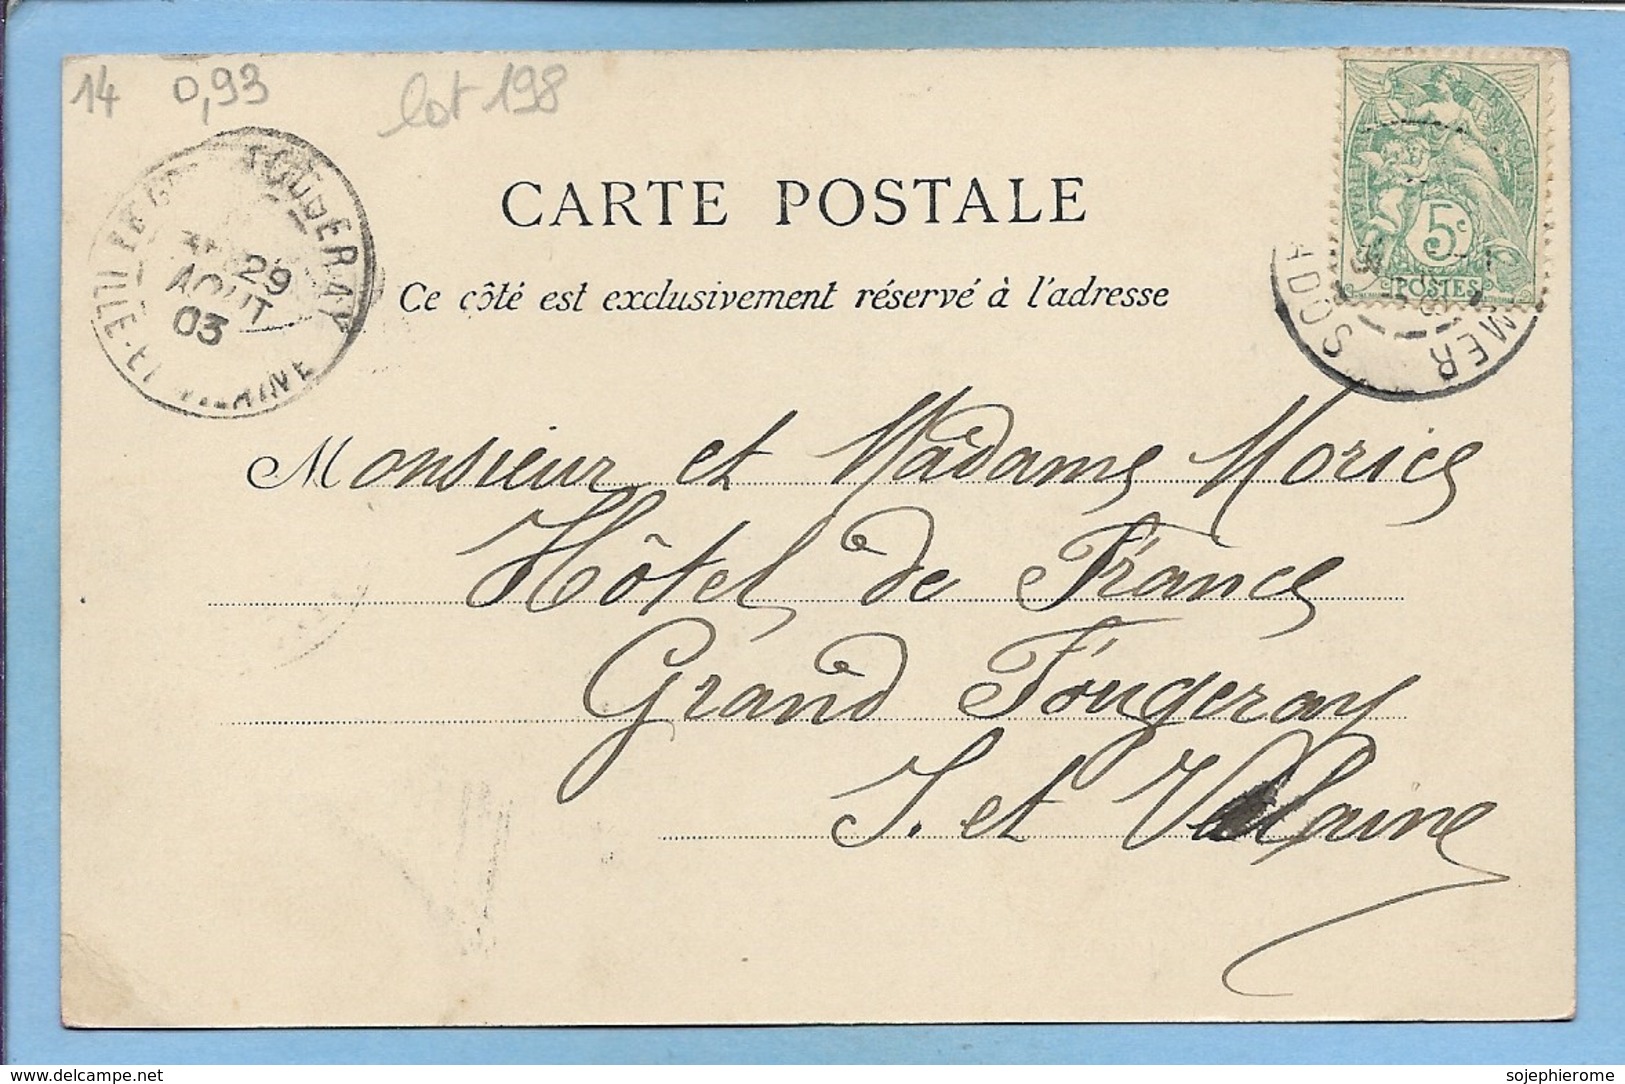 14 0,93 lot 198
CARTE POSTALE
Ce côté est exclusivement réservé à l'adresse
29
AOUT
03
5c
POSTES
Monsieur et Madame Morice
Hôtel de France
Grand Fougeray
I. et Vilaine
www.delcampe.net
sojephierome